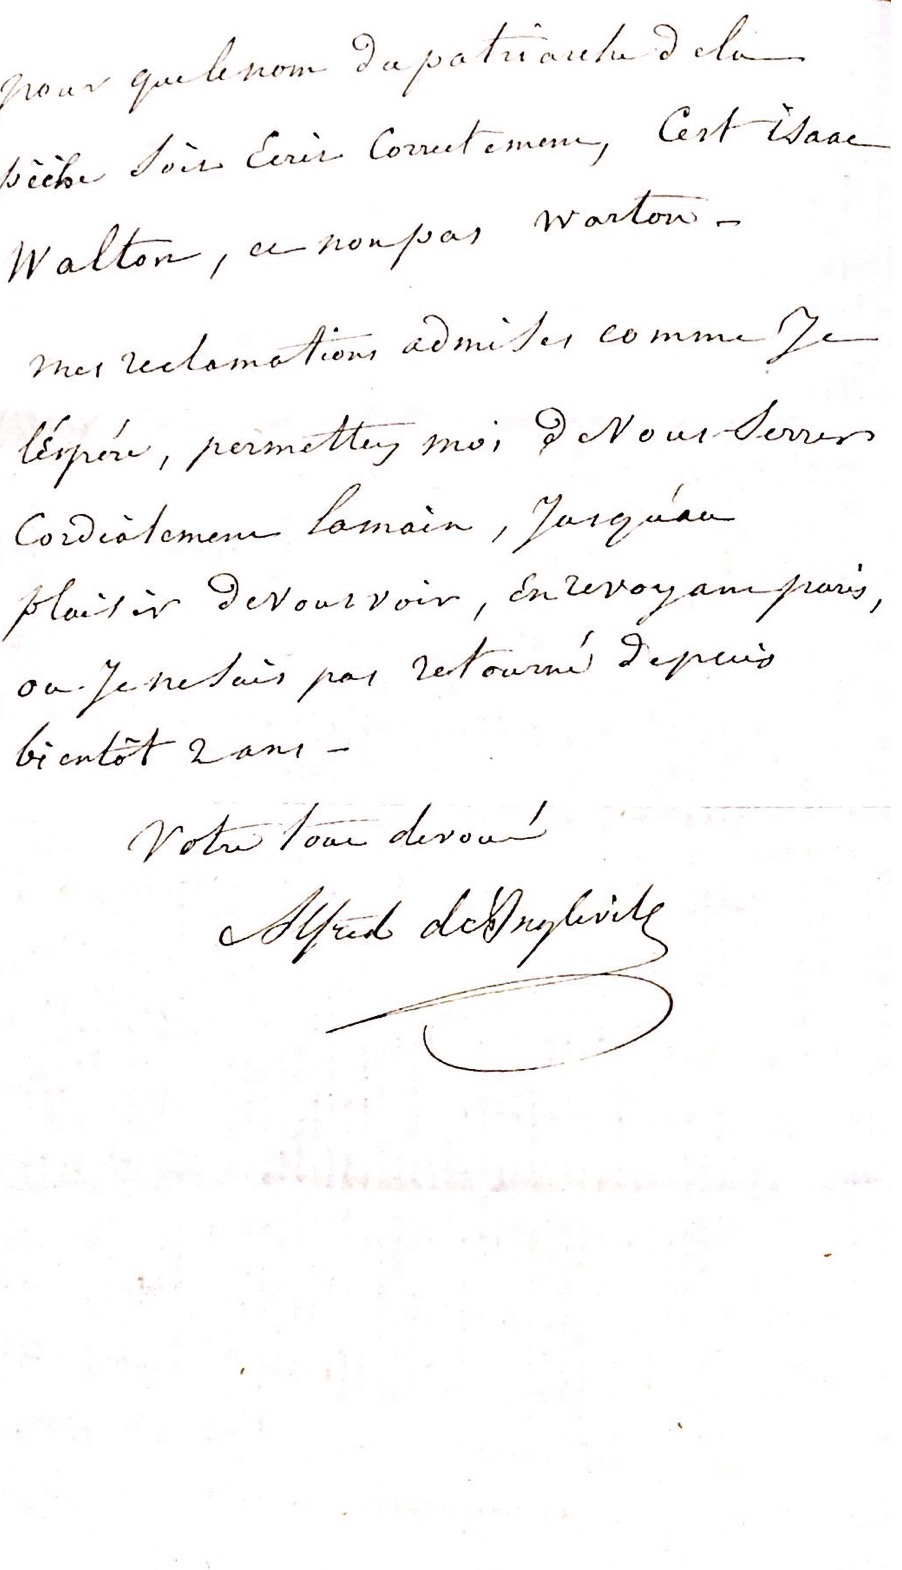 pour que le nom du patriarche de la
pêche soit Ecrit Correctement, C'est isaac
Walton, et non pas Warton -
mes reclamations admises comme Je
l'éspére, permettez moi de Vous Serrer
Cordialement la main, Jusqu'au
plaisir de vous voir, En revoyant paris,
ou Je ne suis pas retourné depuis
bientôt 2 ans -
Votre tout devoué
Alfred d'Englevile